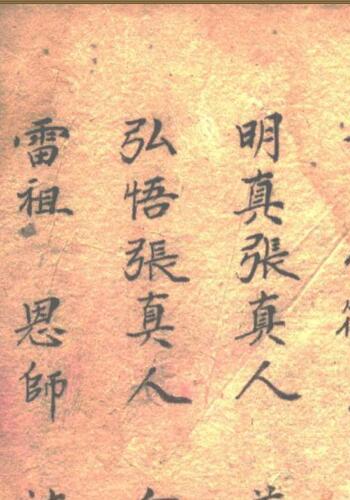 明真張真人
弘悟張真人
雷祖 恩師